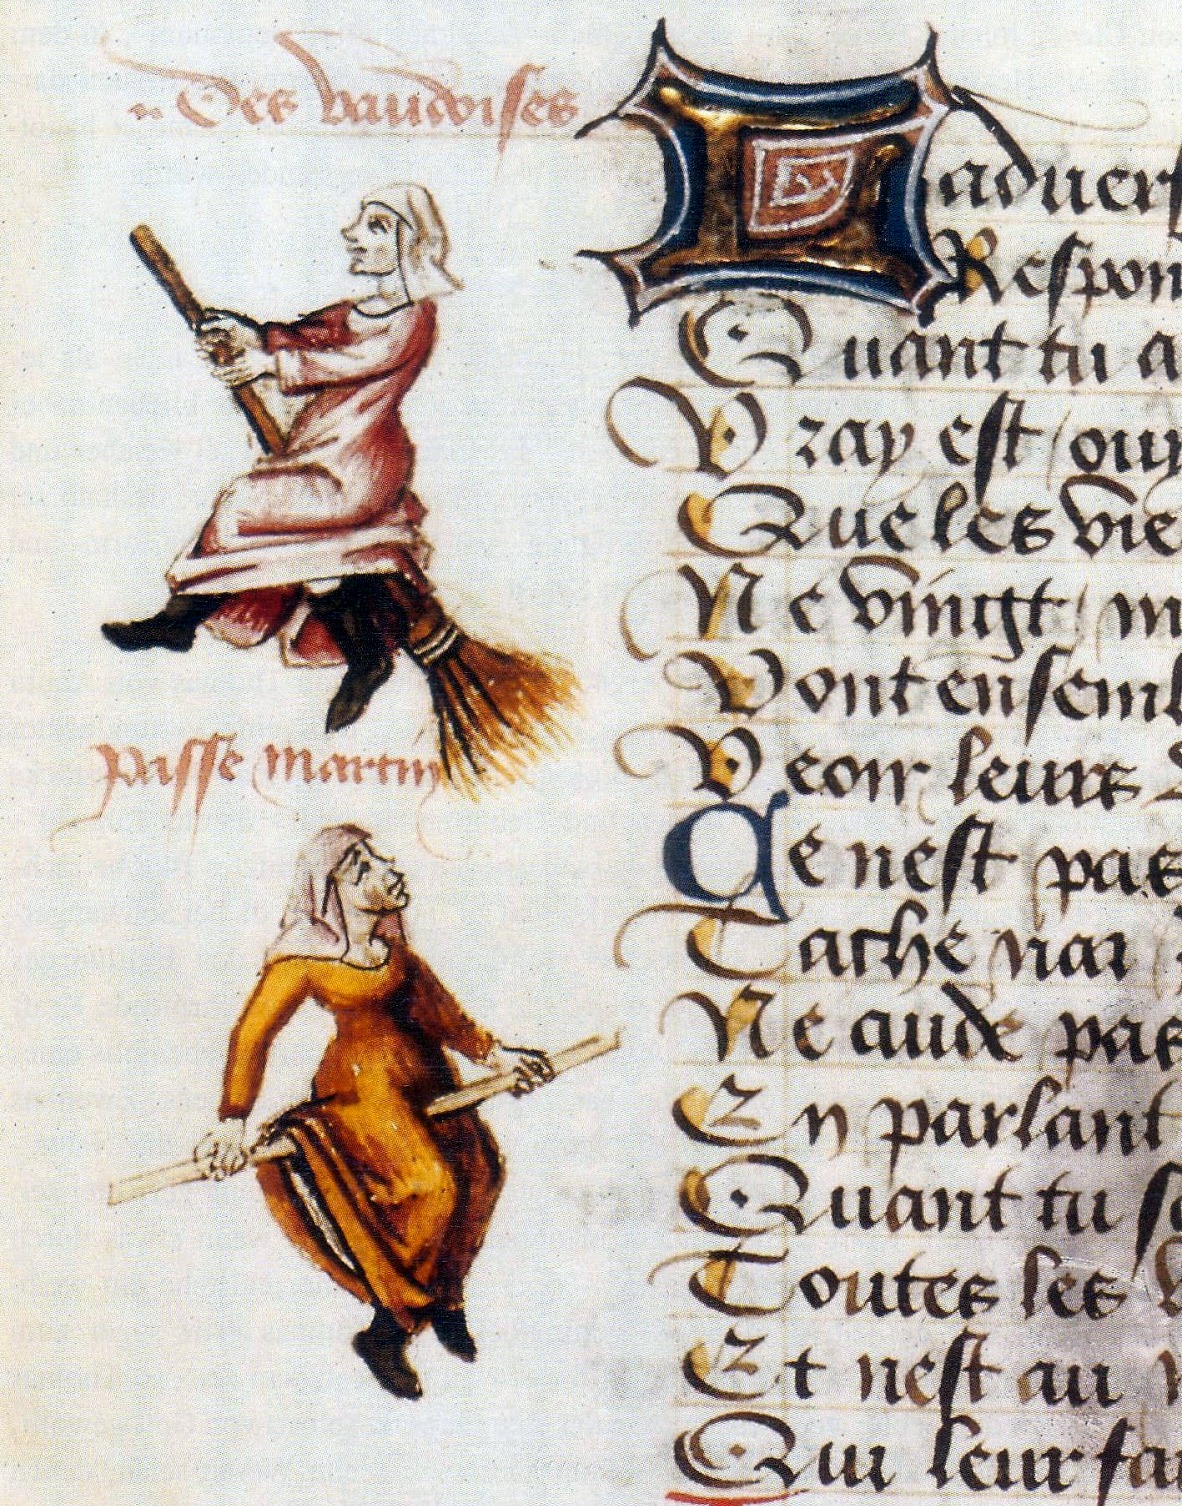 Des vaudoises
passe martin
Ladvers
Respon
Quant tu a
Vray est / ouy
Que les vie
Ne vingt / m
Vont ensemb
Veoir leurs
Ce nest pas
Tache nar
Ne cuide pas
En parlant
Quant tu so
Toutes les v
Et nest au
Qui leur fai